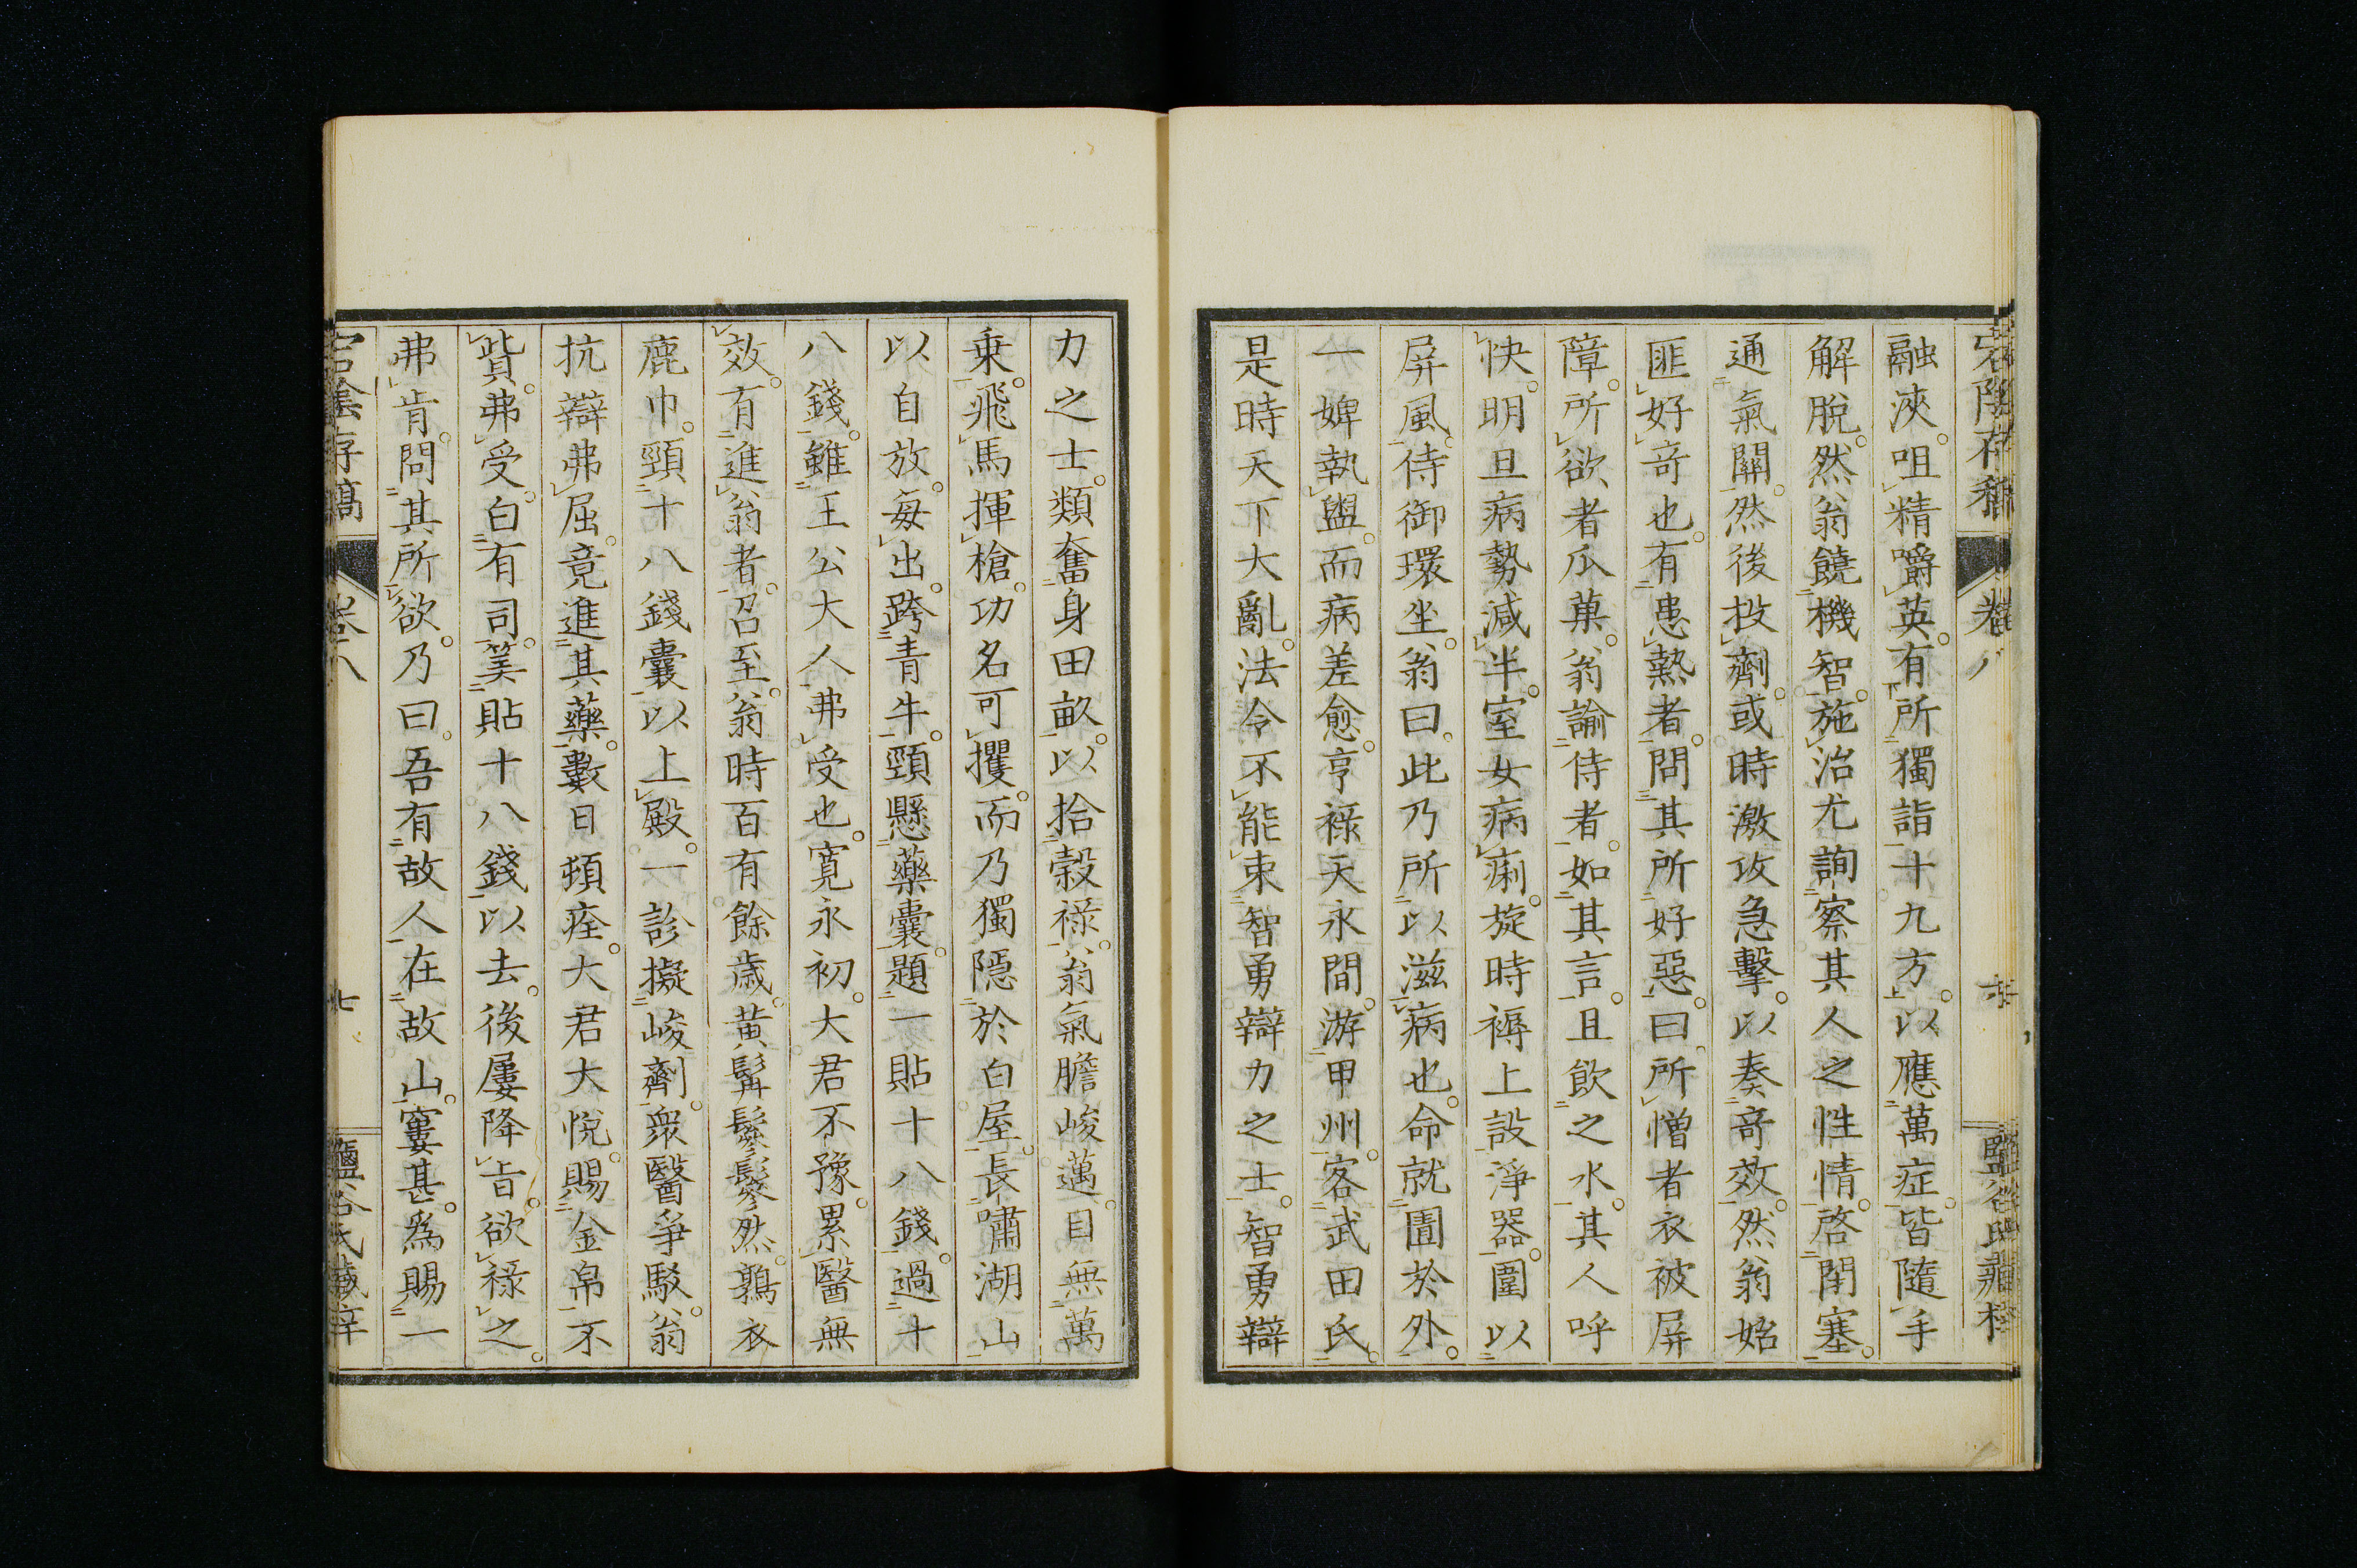 融浹咀精嚼英有所獨詣十九方以應萬症皆隨手
解脫然翁饒機智施治尤詢察其人之性情啓閉塞
通氣關然後投劑或時激攻急擊以奏竒效然翁始
匪好竒也有患熱者問其所好惡曰所憎者衣被屏
障所欲者瓜菓翁諭侍者如其言且飲之水其人呼
快明旦病勢減半室女病痢旋時褥上設淨器圍以
屏風侍御環坐翁曰此乃所以滋病也命就圊於外
一婢執盥而病差愈亨祿天永間游甲州客武田氏
是時天下大亂法令不能束智勇辯力之士智勇辯
力之士類奮身田畝以拾穀祿翁氣膽峻邁目無萬
乗飛馬揮槍功名可攫而乃獨隱於白屋長嘯湖山
以自放每出跨青牛頸懸藥囊題一貼十八錢過十
八錢雖王公大人弗受也寛永初大君不豫累醫無
效有進翁者召至翁時百有餘歳黃髯鬖鬖然鶉衣
鹿巾頸十八錢囊以上殿一診擬峻劑衆醫爭駁翁
抗辯弗屈竟進其藥數日頓痊大君大悅賜金帛不
貲弗受白有司筭貼十八錢以去後屢降旨欲祿之
弗肯問其所欲乃曰吾有故人在故山窶甚爲賜一
宕陰存稿 卷八 七